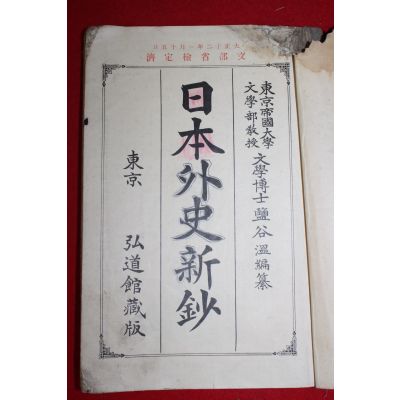 大正十二年一月十五日
文部省檢定濟
東京帝國大學
文學部教授
文學博士 鹽谷 溫編纂
日本外史新鈔
東京 弘道館藏版